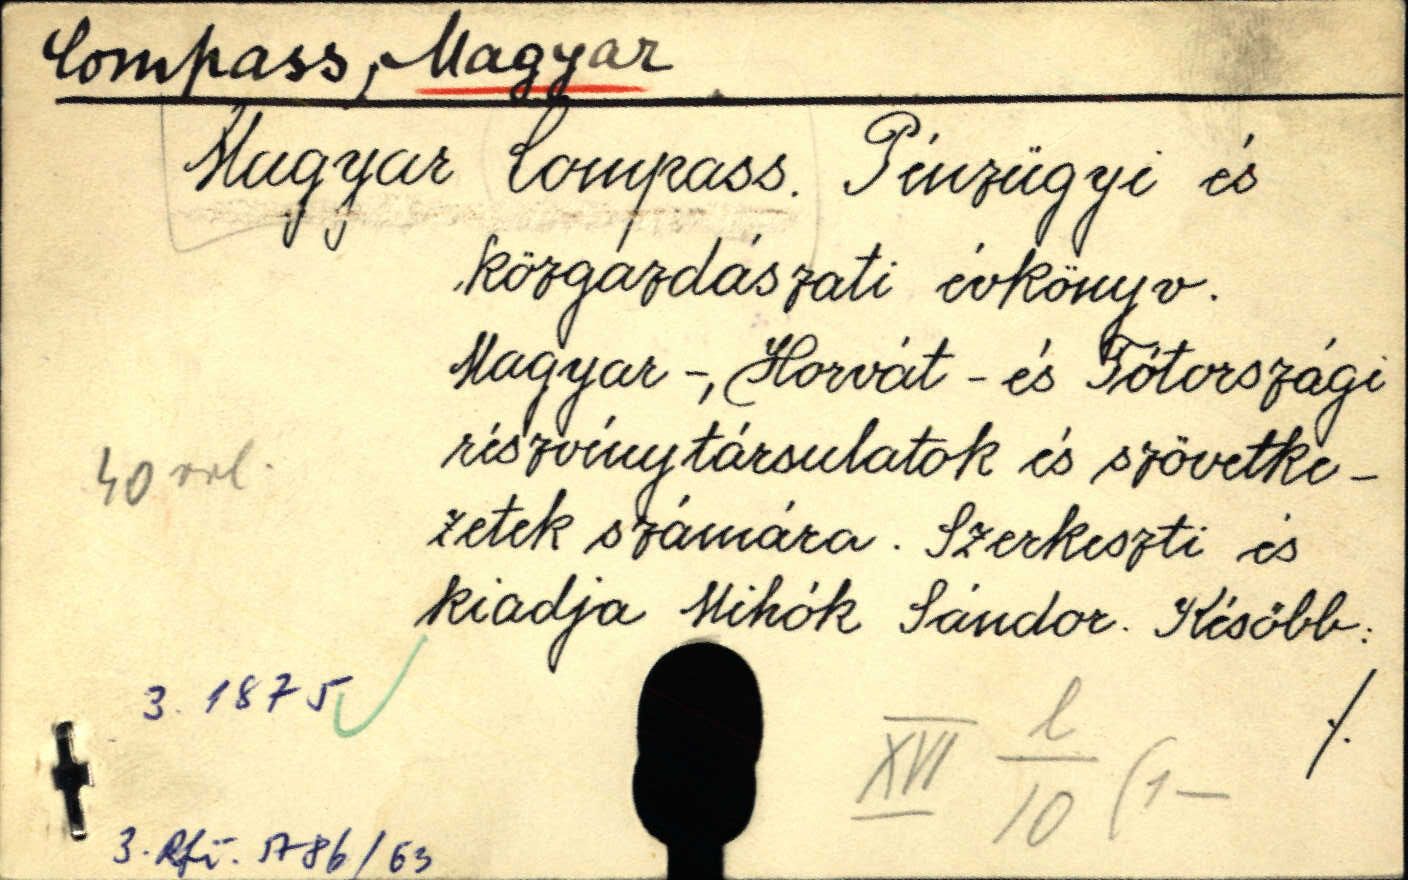 Compass, Magyar
Magyar Compass. Pénzügyi és
közgazdászati évkönyv.
Magyar-, Horvát- és Tótországi
részvénytársulatok és szövetke-
zetek számára. Szerkeszti és
kiadja Mihók Sándor. Később:
40
3. 1875
./.
XVI l/10 (1-
3. 5786/63